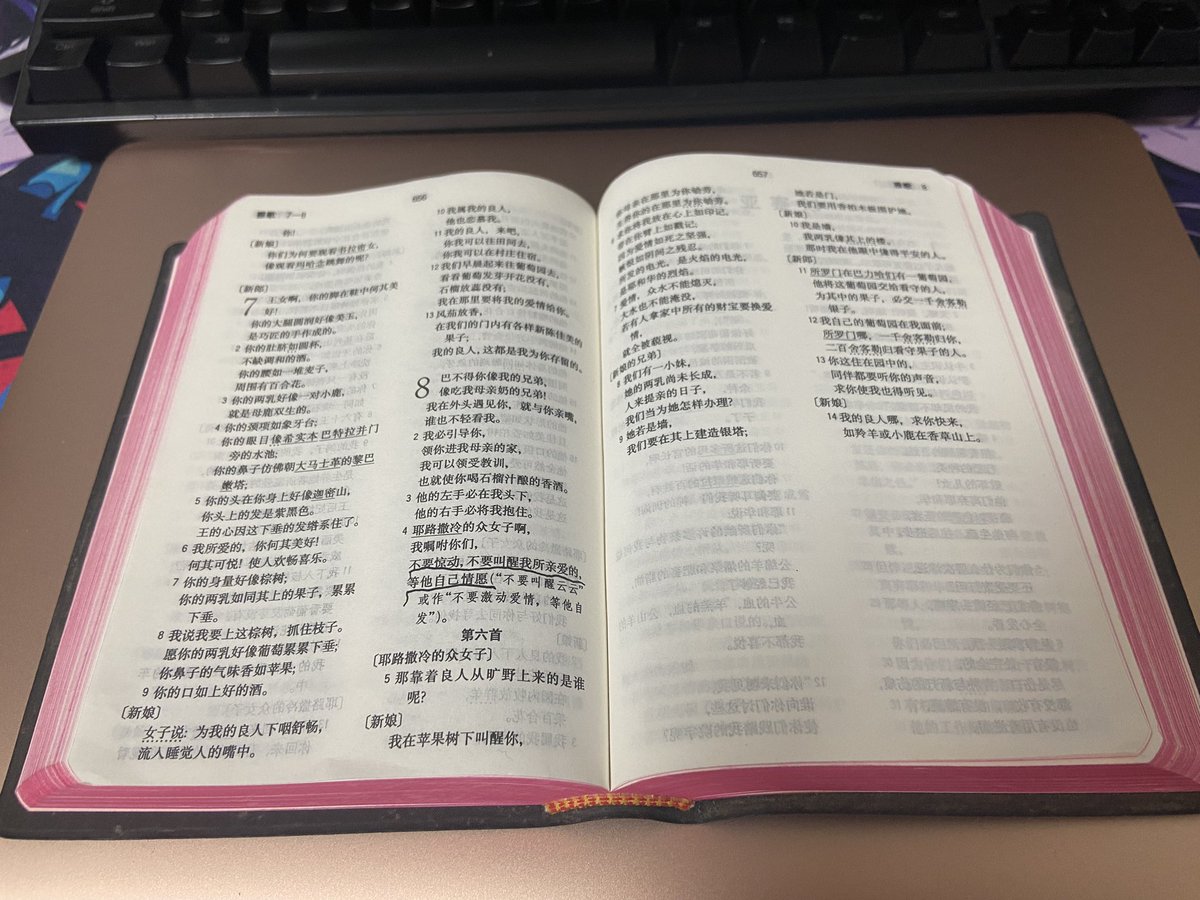 雅歌 7—8
656
你!
〔新娘〕
你们为何要观看书拉密女,
像观看玛哈念跳舞的呢?
〔新郎〕
7 王女啊,你的脚在鞋中何其美
好!
你的大腿圆润好像美玉,
是巧匠的手作成的。
2 你的肚脐如圆杯,
不缺调和的酒。
你的腰如一堆麦子,
周围有百合花。
3 你的两乳好像一对小鹿,
就是母鹿双生的。
4 你的颈项如象牙台;
你的眼目像希实本巴特拉并门
旁的水池;
你的鼻子仿佛朝大马士革的黎巴
嫩塔;
5 你的头在你身上好像迦密山,
你头上的发是紫黑色。
王的心因这下垂的发绺系住了。
6 我所爱的,你何其美好!
何其可悦!使人欢畅喜乐。
7 你的身量好像棕树;
你的两乳如同其上的果子,累累
下垂。
8 我说我要上这棕树,抓住枝子。
愿你的两乳好像葡萄累累下垂;
你鼻子的气味香如苹果;
9 你的口如上好的酒。
〔新娘〕
女子说:为我的良人下咽舒畅,
流入睡觉人的嘴中。
10 我属我的良人,
他也恋慕我。
11 我的良人,来吧,
你我可以往田间去,
你我可以在村庄住宿。
12 我们早晨起来往葡萄园去,
看看葡萄发芽开花没有,
石榴放蕊没有;
我在那里要将我的爱情给你。
13 风茄放香,
在我们的门内有各样新陈佳美的
果子;
我的良人,这都是我为你存留的。
8 巴不得你像我的兄弟,
像吃我母亲奶的兄弟!
我在外头遇见你,就与你亲嘴,
谁也不轻看我。
2 我必引导你,
领你进我母亲的家,
我可以领受教训,
也就使你喝石榴汁酿的香酒。
3 他的左手必在我头下,
他的右手必将我抱住。
4 耶路撒冷的众女子啊,
我嘱咐你们,
不要惊动,不要叫醒我所亲爱的,
等他自己情愿(“不要叫醒云云”
或作“不要激动爱情,等他自
发”)。
第六首
〔耶路撒冷的众女子〕
5 那靠着良人从旷野上来的是谁
呢?
〔新娘〕
我在苹果树下叫醒你,
657
雅歌 8
你母亲在那里为你劬劳,
生养你的在那里为你劬劳。
6 求你将我放在心上如印记,
带在你臂上如戳记;
因为爱情如死之坚强,
嫉恨如阴间之残忍。
所发的电光,是火焰的电光,
是耶和华的烈焰。
7 爱情,众水不能熄灭,
大水也不能淹没,
若有人拿家中所有的财宝要换爱
情,
就全被藐视。
〔新娘的兄弟〕
8 我们有一小妹,
她的两乳尚未长成,
人来提亲的日子,
我们当为她怎样办理?
9 她若是墙,
我们要在其上建造银塔;
她若是门,
我们要用香柏木板围护她。
〔新娘〕
10 我是墙,
我两乳像其上的楼。
那时我在他眼中像得平安的人。
〔新郎〕
11 所罗门在巴力哈们有一葡萄园,
他将这葡萄园交给看守的人,
为其中的果子,必交一千舍客勒
银子。
12 我自己的葡萄园在我面前;
所罗门哪,一千舍客勒归你,
二百舍客勒归看守果子的人。
13 你这住在园中的,
同伴都要听你的声音,
求你使我也得听见。
〔新娘〕
14 我的良人哪,求你快来,
如羚羊或小鹿在香草山上。